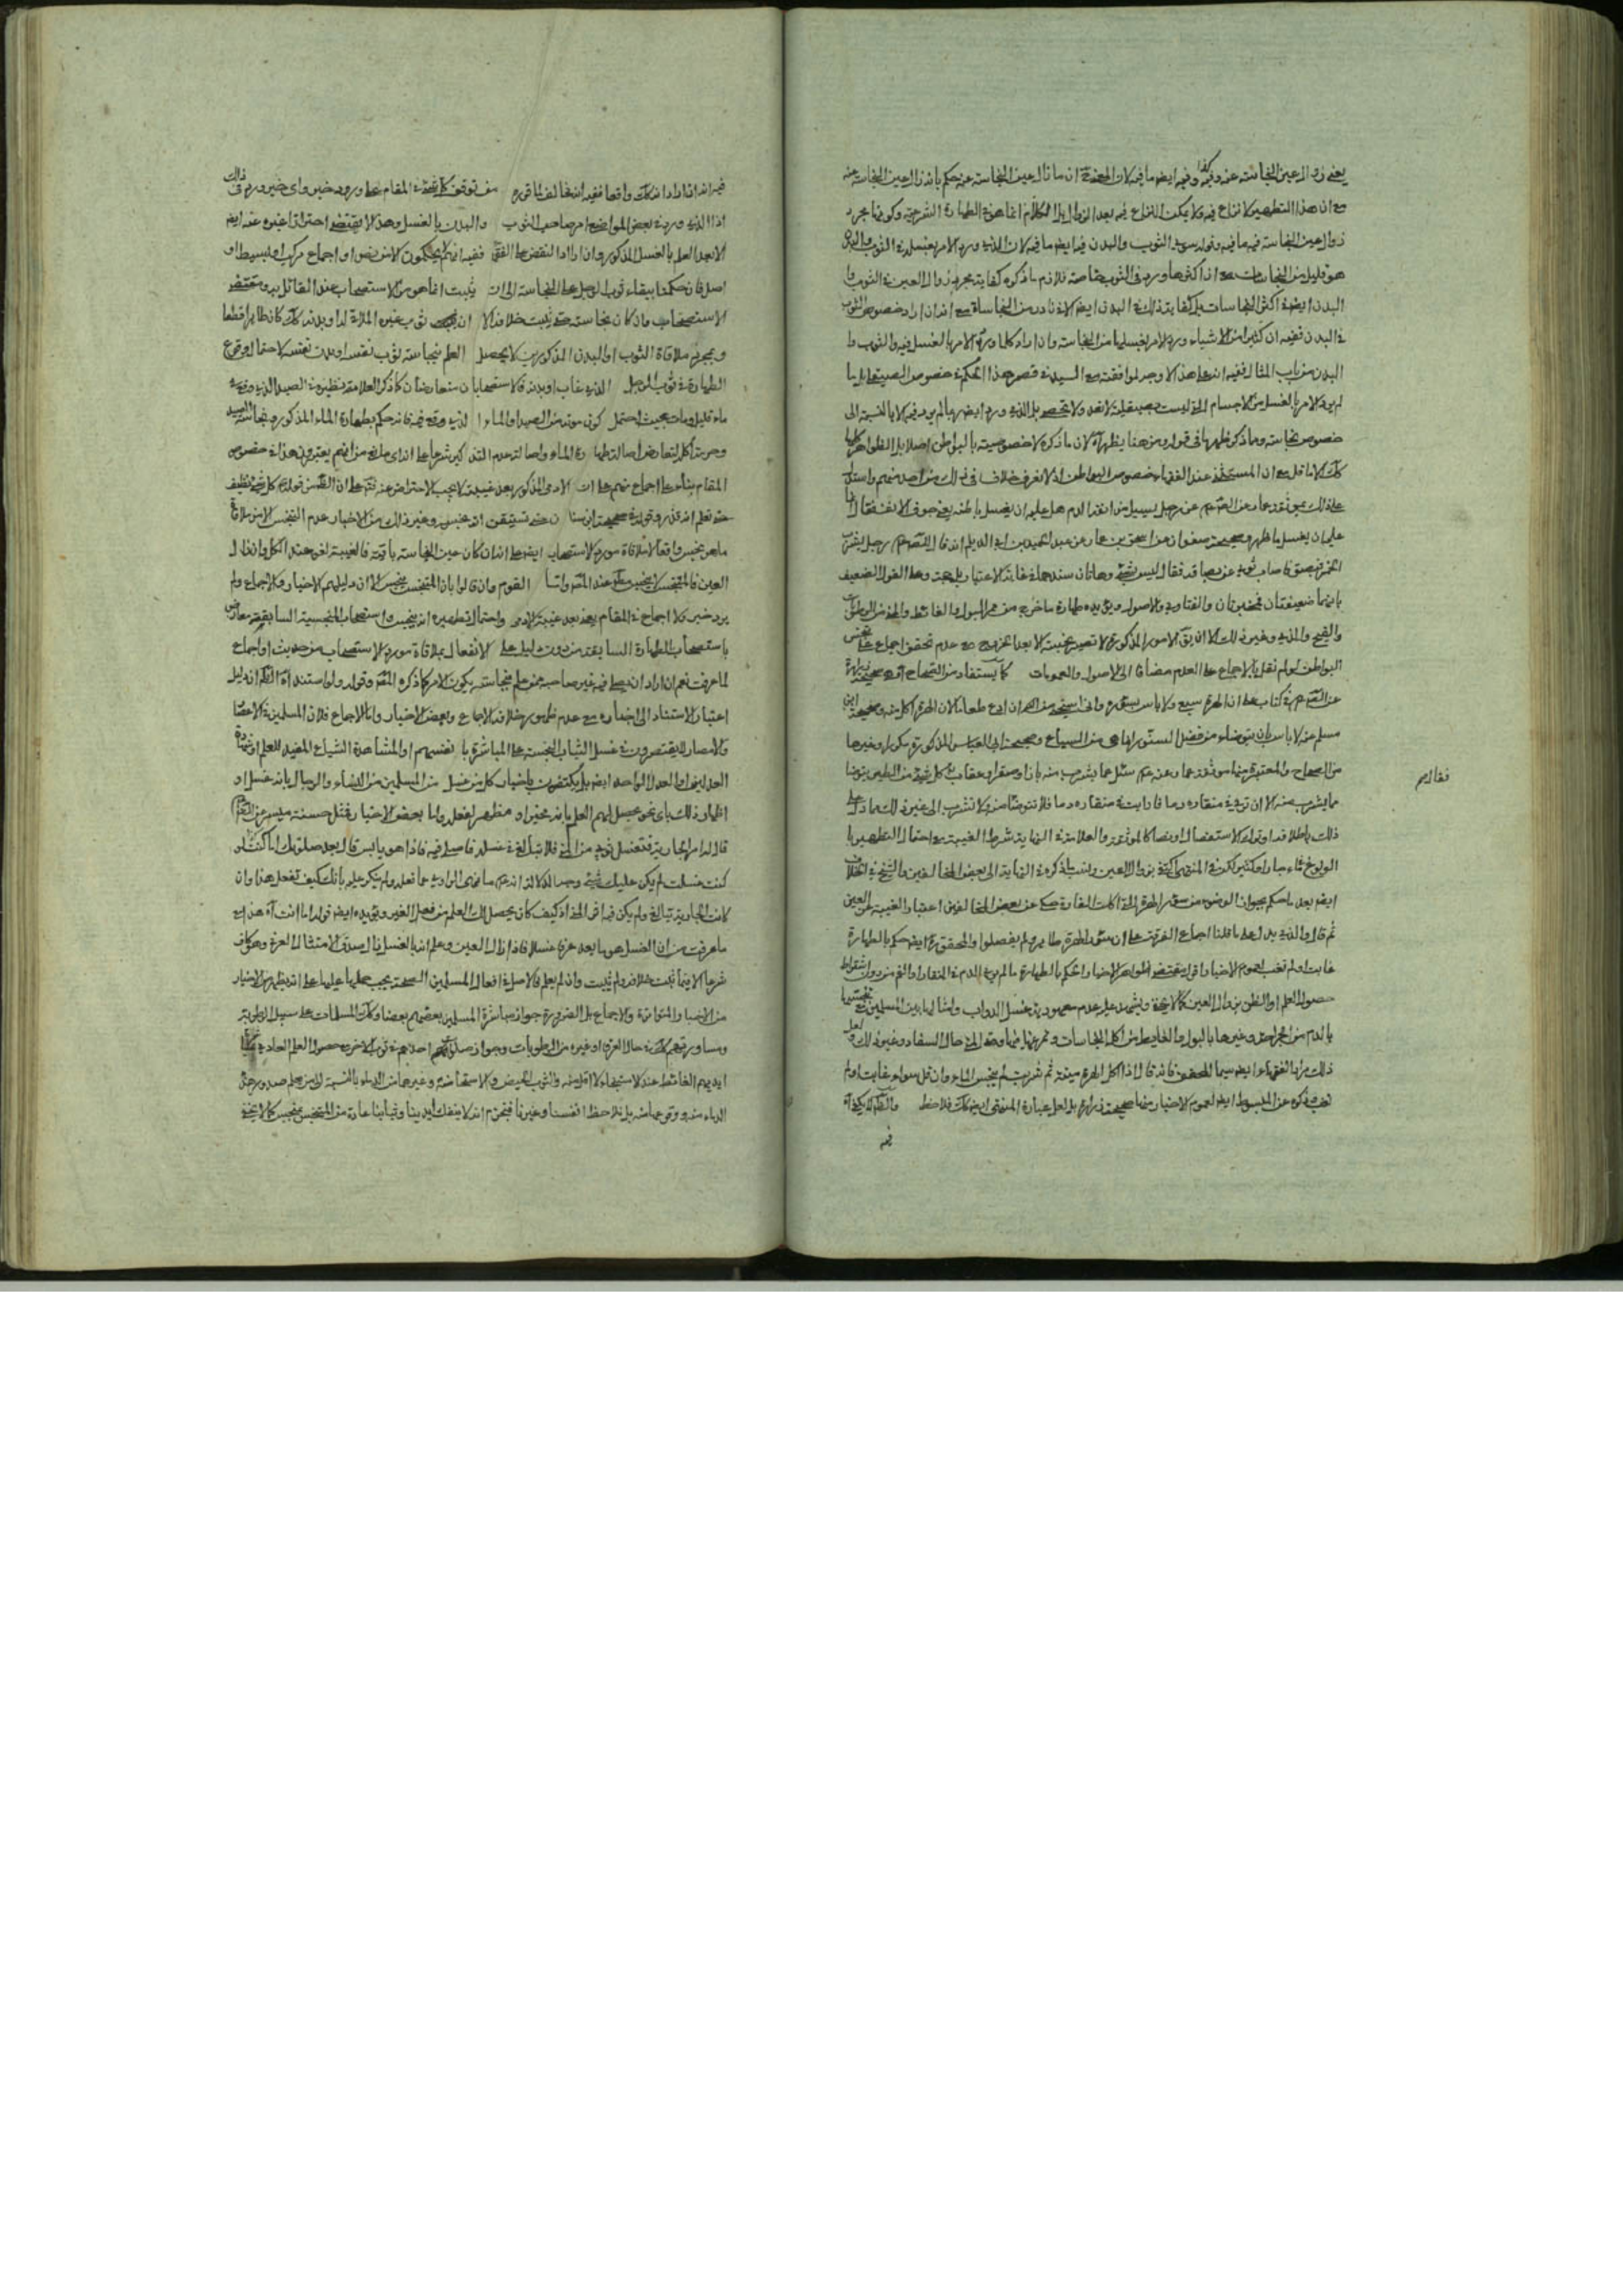 يعنى زوال عين النجاسة عنه وفيه ايض ما فيه لان المعتق ان ما زال عين النجاسة عنه يحكم بانه زال عين النجاسة عنه
مع ان هذا التطهير لا نزاع فيه ولا يمكن النزاع فيه بعد الزوال بل الكلام انما هو فى الطهارة الشرعية وكونها مجرد
زوال عين النجاسة فيه ما فيه وقوله سوى الثوب والبدن فيه ايض ما فيه لان الذى ورد الامر بغسله فى الثوب والبدن
هو قليل من النجاسات مع ان اكثرها ورد فى الثوب خاصة فلازم ما ذكره كفاية مجرد زوال العين فى الثوب
البدن ايض فى اكثر النجاسات بل كفاية ذلك فى البدن ايض الا نادر من النجاسات مع انه ان اراد خصوص الثوب
فى البدن ففيه ان كثيرا من الاشياء ورد الامر بغسلها من النجاسة وان اراد كلما ورد الامر بالغسل فيه والثوب و
البدن من باب المثال ففيه انه على هذا لا وجه لموافقته مع السيد فى قصر هذا الحكم فى خصوص الصيقل بل ما
لم يرد الامر بالغسل من الاجسام التى ليست صيقلية لا تعد ولا تحصى بل الذى ورد ايض ربما لم يرد فيه الا بالنسبة الى
خصوص نجاسة وما ذكر ظهر ما فى قوله ومن هنا يظهر آه لان ما ذكره لا خصوصية له بالبواطن اصلا بل الظواهر كلها
كك الا ما قل مع ان المستثنى عند الفقهاء خصوص البواطن اذ لا نعرف خلافا فى ذلك من احد منهم واستدل
على ذلك بموثقة عمار عن الصادق عم عن رجل يسيل من انفه الدم هل عليه ان يغسل باطنه يعنى جوف الانف فقال انما
عليه ان يغسل ما ظهر وصحيحة صفوان عن اسحق بن عمار عن عبد الحميد بن ابى الديلم انه قال للصادق عم رجل يشرب
الخمر فيبصق فاصاب ثوبى من بصاقه فقال ليس بشئ وهاتان سندهما فى غاية الاعتبار بل حجة وعلى القول الضعيف
بانهما ضعيفتان فمنجبرتان والفتاوى والاصول ويؤيده طهارة ما خرج من ممر البول والغائط والمذى والرطوبات
والقيح والمذى وغير ذلك الا ان يق الامور المذكورة لا تصير نجسة الا بعد الخروج مع عدم تحقق اجماع على تنجس
البواطن لو لم نقل بالاجماع على العدم مضافا الى الاصول والعمومات كما يستفاد من الصحاح آه هى صحيحة زرارة
عن الصادق عم فى كتاب على ان الهرة سبع ولا باس بسؤره وانى استحيى من الله ان ادع طعاما لان الهرة اكل منه وصحيحة ابن
مسلم عنه لا باس بان يتوضاء من فضل السنور انما هى من السباع وصحيحة ابى العباس المذكورة مكررا وغيرها
من الصحاح والمعتبرة منها موثقة عمار عنه عم سئل عما يشرب منه باز او صقر او عقاب فقال كل شئ من الطير يتوضا
مما يشرب منه الا ان ترى فى منقاره دما فان رايت فى منقاره دما فلا تتوضا منه ولا تشرب الى غير ذلك مما دل على
ذلك باطلاقه او ترك الاستفصال او نصا كالموثقة والعلامة فى النهاية شرط الغيبة مع احتمال التطهير با
لولوغ فى ماء جار او كثير لكنه فى المنتهى اكتفى بزوال العين ونسب ما ذكره فى النهاية الى بعض المخالفين والشيخ فى الخلاف
ايض بعد ما حكم بجواز الوضوء من سؤر الهرة التى اكلت الفارة حكى عن بعض المخالفين اعتبار الغيبة عن العين
ثم قال والذى يدل على ما قلنا اجماع الفرقة على ان سؤر الهرة طاهر ولم يفصلوا والمحقق ره ايض حكم بالطهارة
غابت او لم تغب لعموم الاخبار اقول مقتضى ظواهر الاخبار الحكم بالطهارة ما لم ير الدم فى المنقار او الفم من دون اشتراط
حصول العلم او الظن بزوال العين كما لا يخفى ويشهد عليه عدم معهودية غسل الدواب وامثالها بين المسلمين مع تنجسها
بالدم من الجراحة وغيرها بالبول والغايط من اكل النجاسات وتمرغها فيها وفى حال السفاد وغير ذلك ولعل
ذلك مراد الفقهاء ايض سيما المحقق فانه قال اذا اكل الهرة ميتة ثم شربت لم ينجس الماء وان قل سواء غابت او لم
تغب وذكره عن المبسوط ايض لعموم الاخبار منها صحيحة زرارة بل لعل عبارة المنتهى ايض كك فلاحظ والظ انه لا يكفى آه
فيه
فقال عم
فيه انه ان اراد انه كك واقعا ففيه انه مخالف لما قرره من توقف كل نجس فى المقام على ورود خبر واى خبر ورد فى ذلك
اذ الذى ورد فى بعض المواضع امر صاحب الثوب والبدن بالغسل وهذا لا يقتضى احتراز غيره عنه ايض
الا بعد العلم بالغسل المذكور وان اراد النقض على الفقهاء ففيه انهم يحكمون الا من نص او اجماع مركب او بسيط او
اصل فان حكموا ببقاء ثوب الرجل على النجاسة الى ان يثبت انما هو من الاستصحاب عند القائل به ومقتضى
الاستصحاب وان كان نجاسته حتى يثبت خلافه الا ان ثوب غيره الملاقى له او بدنه كك كان طاهرا قطعا
وبمجرد ملاقاة الثوب او البدن المذكورين لا يحصل العلم بنجاسة ثوب نفسه او بدن نفسه لاحتمال وقوع
الطهارة فى ثوب الرجل الذى غاب او بدنه فالاستصحابان متعارضان كما ذكر العلامة نظيره فى الصيد الذى وقع فى
ماء قليل ومات بحيث احتمل كون موته من الصيد او الماء الذى وقع فيه فانه حكم بطهارة الماء المذكور ونجاسة الصيد
وحرمة اكله لتعارض اصالة طهارة الماء واصالة عدم التذكية شرعا على انه اى مانع من انهم يعتبرون هذا فى خصوص
المقام بناء على اجماع منهم على ان الادمى المذكور بعد غيبته لا يجب الاحتراز عنه فتم على ان الظاهر من قولهم عم كل شئ نظيف
حتى تعلم انه قذر وقوله فى صحيحة ابن سنان حتى تستيقن انه نجس وغير ذلك من الاخبار عدم التنجس الا من ملاقاة
ما هو نجس واقعا لا ملاقاة مورد الاستصحاب ايض على انه ان كان عين النجاسة باقية فالغيبة لغو عند الكل وان زال
العين فالمتنجس لا ينجس مطلقا عند القوم وان قالوا بان المتنجس ينجس الا ان دليلهم الاخبار والاجماع ولم
يرد خبر ولا اجماع فى المقام يعنى بعد غيبة الادمى واحتمال تطهيره انه ينجس واستصحاب النجسية السابقة معارض
باستصحاب الطهارة السابقة من دون دليل على الانفعال بملاقاة مورد الاستصحاب من حديث او اجماع
لما عرفت نعم ان اراد ان يصلى فيه غير صاحبه ممن علم بنجاسته يكون الامر كما ذكره وقوله ولو استند آه الظاهر ان دليل
اعتبار الاستناد الى اخباره مع عدم ظهور خلافه الاجماع وبعض الاخبار واما الاجماع فلان المسلمين فى الاعصار
والامصار لا يقتصرون فى غسل الثياب النجسة على المباشرة بانفسهم او المشاهدة الشياع المفيد للعلم او شهادة
العدلين او العدل الواحد ايض بل يكتفون باخبار كل من غسل من المسلمين من النساء والرجال بانه غسل او
اظهار ذلك باى نحو يحصل لهم العلم بانه مخبر او مظهر لفعله واما بعض الاخبار فمثل حسنة ميسر عن الصادق عم
قال له امر الجارية فتغسل ثوبى من المنى فلا تبالغ فى غسله فاصلى فيه فاذا هو يابس قال اعد صلوتك اما انك لو
كنت غسلت لم يكن عليك شئ وجه الدلالة انه عم ما نهى الراوى عما فعله ولم ينكر عليه بانك كيف تفعل هذا وان
كانت الجارية تبالغ ولم يكن فيه اثر المنى اذ كيف كان يحصل لك العلم من فعل الغير ويؤيده ايض قوله اما انت آه هذا مع
ما عرفت من ان الغسل هو ما يعد عرفا غسلا فاذا زال العين وعلم انه بالغسل زال صدق الامتثال العرفى وهو كاف
شرعا الا فيما ثبت خلافه ولم يثبت وان لم يعلم فالاصل فى افعال المسلمين الصحة يجب حملها عليها على انه يظهر من الاخبار
من الاخبار المتواترة والاجماع بل الضرورة جواز مباشرة المسلمين بعضهم بعضا وكك المسلمات على سبيل الرطوبة
ومساورتهم كك فى حال العرق او غيره من الرطوبات وجواز صلوة احدهم فى ثوب الاخر مع حصول العلم العادى
ايديهم الغائط عند الاستنجاء لا اقل منه والثوب الحيض والاستحاضة وغيرها من الدماء بالنسبة الى من يعلم صدور هذه
الدماء منه ووقوعها منه بل نلاحظ انفسنا وغيرنا فنجزم انه لا ينفك ايدينا وثيابنا عادة من المتنجس بنجس كما لا يخفى